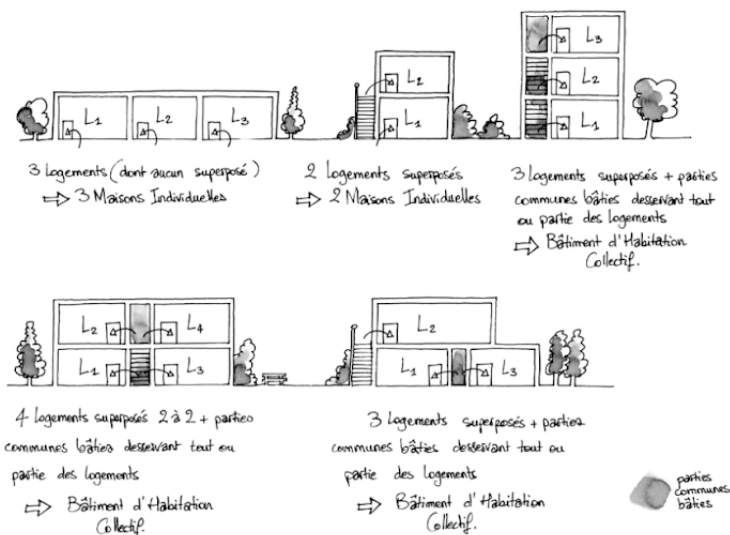 L1
L2
L3
3 logements (dont aucun superposé)
⇒ 3 Maisons Individuelles
L2
L1
2 logements superposés
⇒ 2 Maisons Individuelles
L3
L2
L1
3 logements superposés + parties
communes bâties desservant tout
ou partie des logements
⇒ Bâtiment d'Habitation
Collectif.
L2
L4
L1
L3
4 logements superposés 2 à 2 + parties
communes bâties desservant tout ou
partie des logements
⇒ Bâtiment d'Habitation
Collectif.
L2
L1
L3
3 logements superposés + parties
communes bâties desservant tout ou
partie des logements
⇒ Bâtiment d'Habitation
Collectif.
parties
communes
bâties